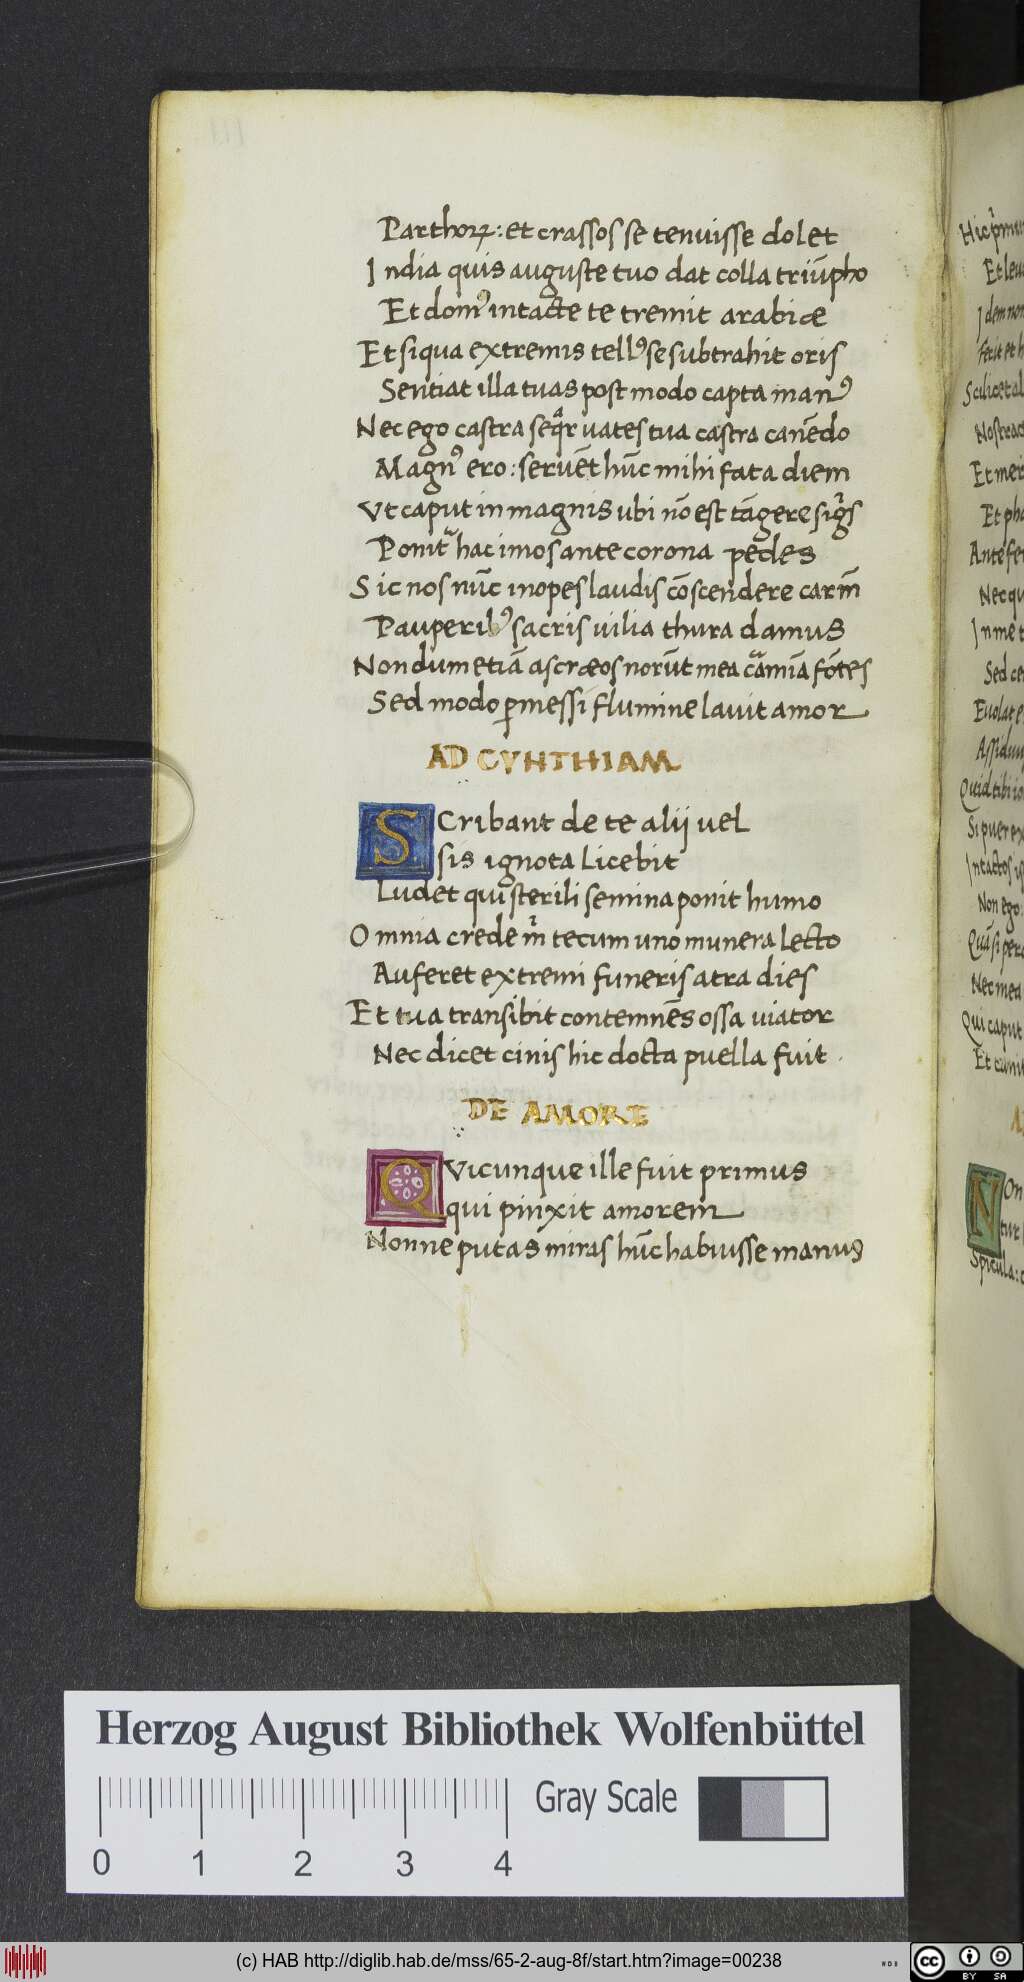 Parthoꝝ: et crassos se tenuisse dolet
India quis auguste tuo dat colla triūpho
Et domꝰ intacte te tremit arabiæ
Et siqua extremis tellꝰ se subtrahit oris
Sentiat illa tuas post modo capta manꝰ
Nec ego castra seq̄r uates tua castra canēdo
Magnꝰ ero: seruēt hūc mihi fata diem
Vt caput in magnis ubi nō est tāgere sigͥs
Ponit᷑ hac imos ante corona pedes
Sic nos nūc inopes laudis cōscendere carm̄
Pauperibꝰ sacris uilia thura damus
Nondum etiā ascræos norūt mea cͣamīa fōtes
Sed modo ꝑmessi flumine lauit amor
AD CYNTHIAM
SCribant de te alij uel
sis ignota licebit
Ludet qui sterili semina ponit humo
Omnia crede mͥ tecum uno munera lecto
Auferet extremi funeris atra dies
Et tua transibit contemnēs ossa uiator
Nec dicet cinis hic docta puella fuit.
DE AMORE
QVicunque ille fuit primus
qui pinxit amorem
Nonne putas miras hūc habuisse manus
Hic pͥmu
Et leu
Idem non
fecit et h
Scilicet al
Nostrac
Et mer
Et pha
Ante fer
Nec qu
In me t
Sed ce
Euolat e
Assidu
Quid tibi io
Si puer ex
Intactos is
Non ego
Quā si per
Nec mea
Qui caput
Et cani
A
NOn
tur
Spicula: c
Herzog August Bibliothek Wolfenbüttel
Gray Scale
0 1 2 3 4
(c) HAB http://diglib.hab.de/mss/65-2-aug-8f/start.htm?image=00238
cc BY SA